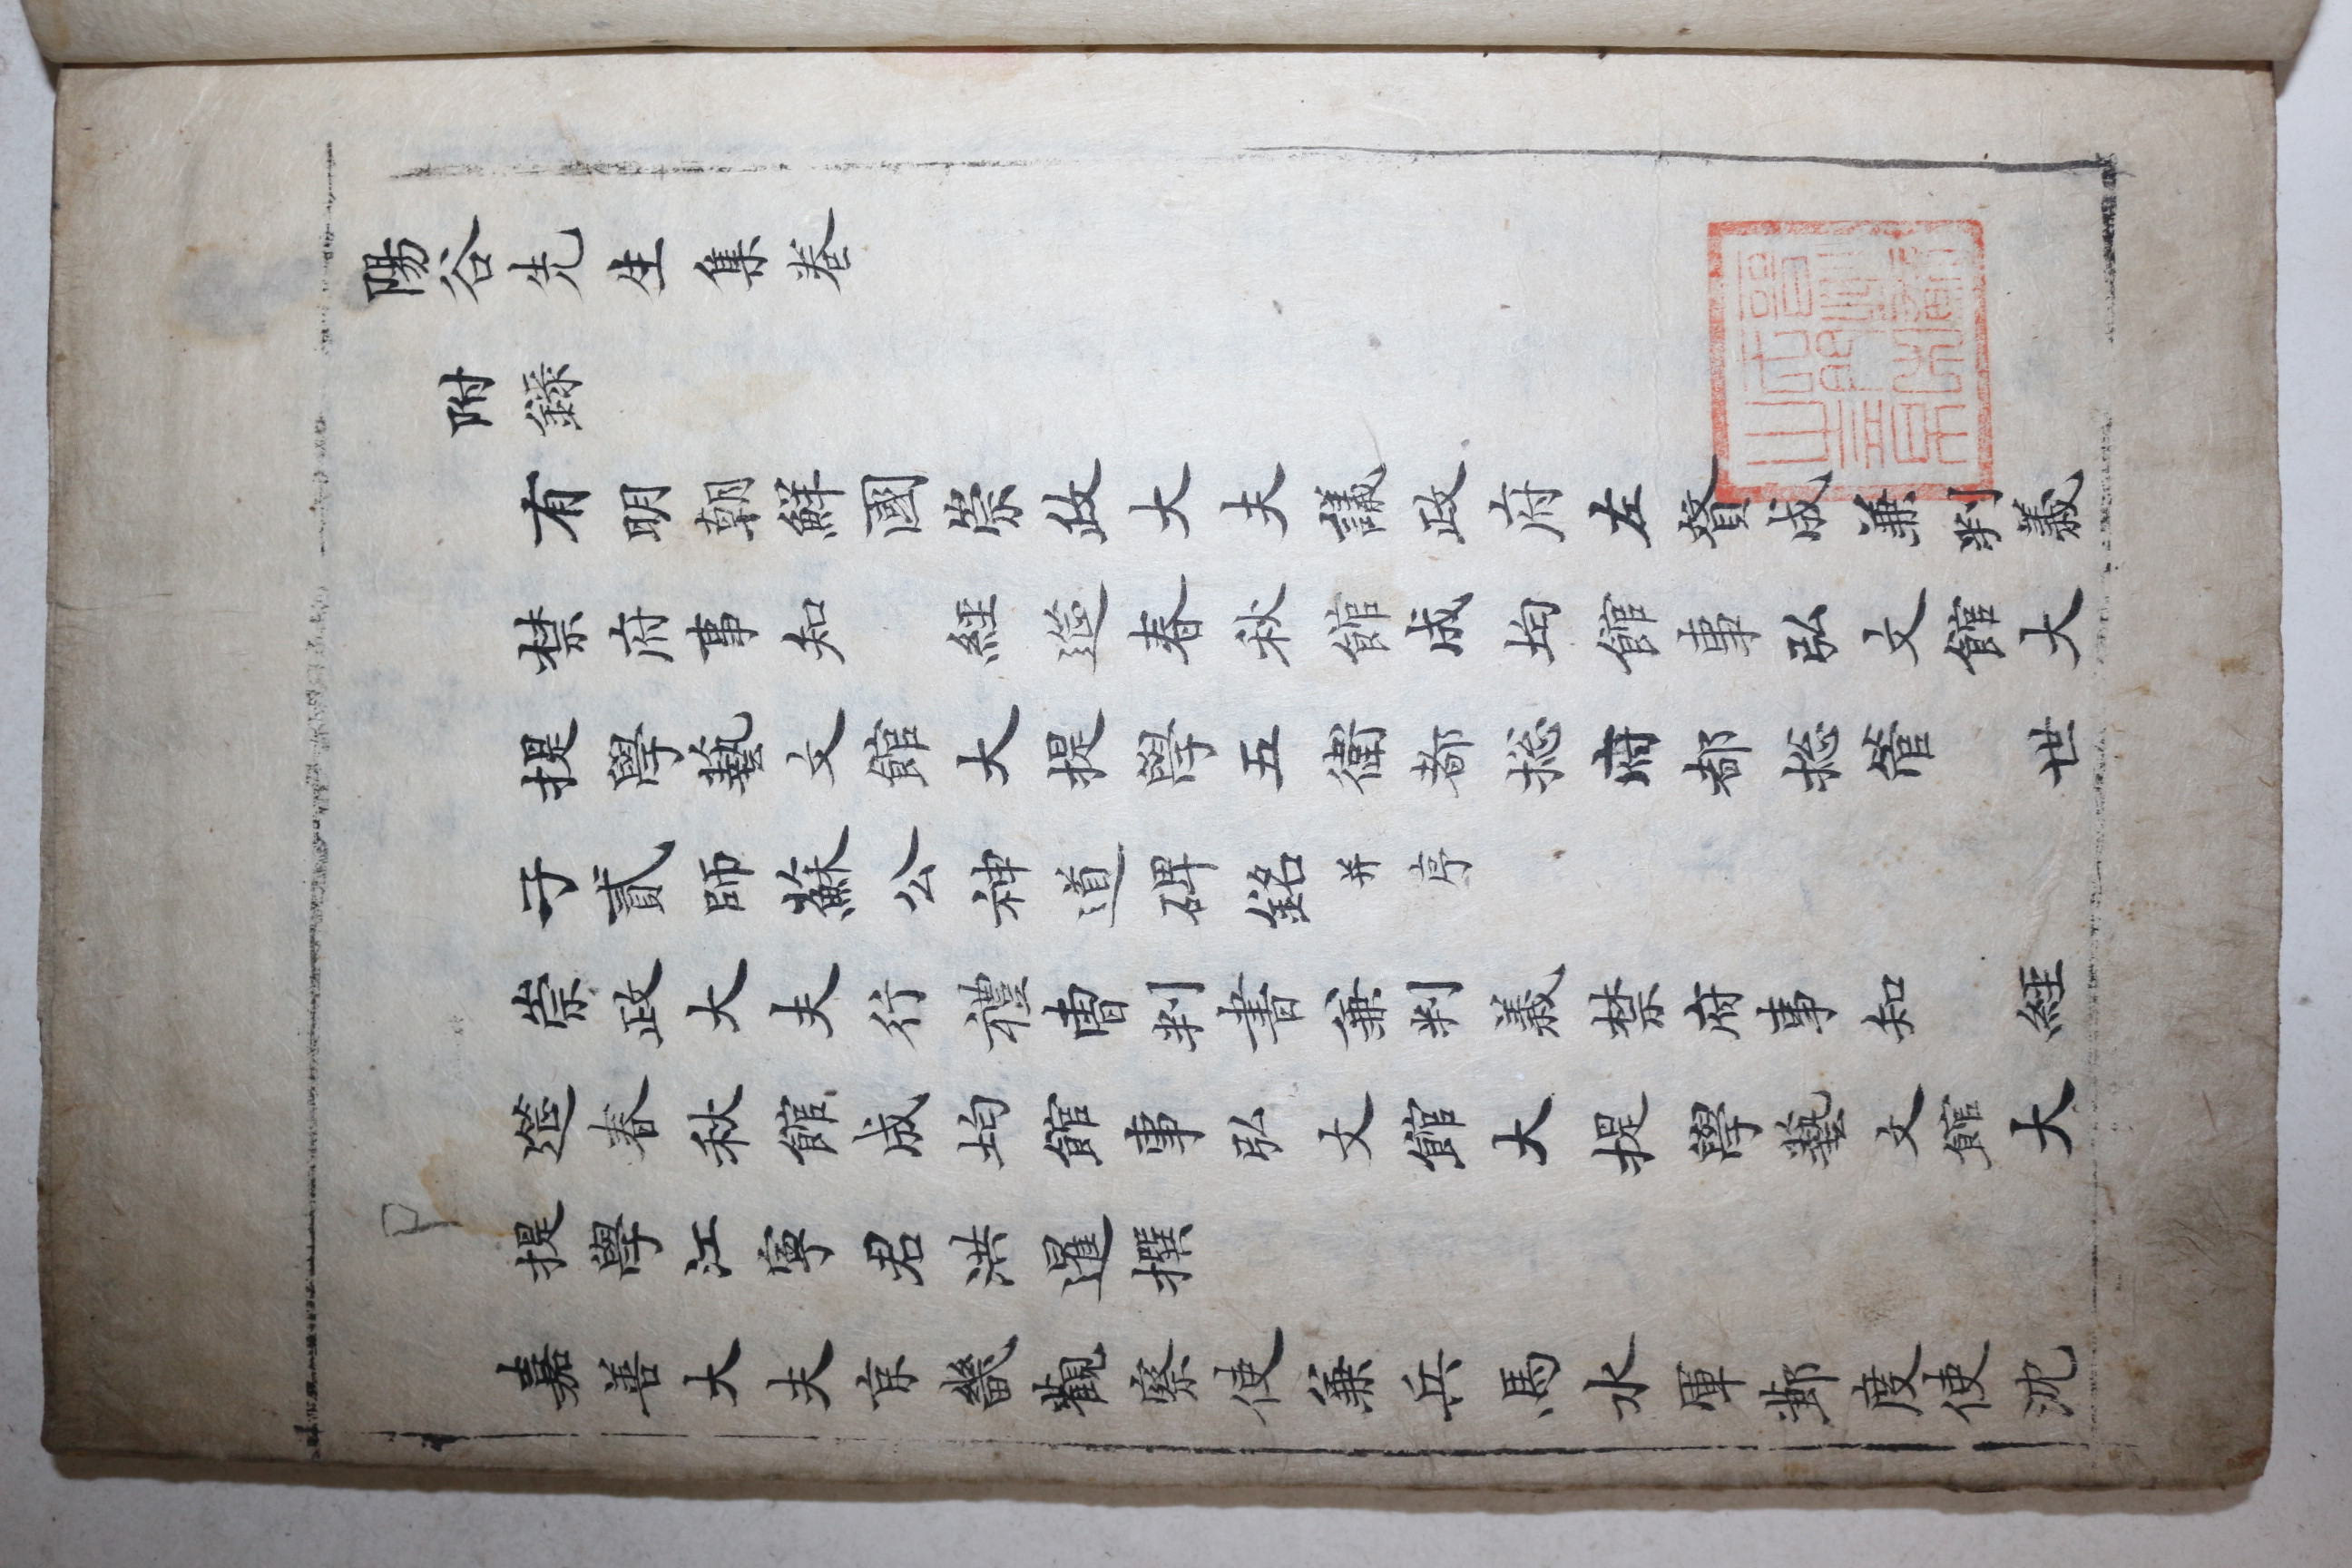 陽谷先生集卷
附錄
有明朝鮮國崇政大夫議政府左贊成兼判義
禁府事知 經筵春秋館成均館事弘文館大
提學藝文館大提學五衛都摠府都摠管 世
子貳師蘇公神道碑銘并序
崇政大夫行禮曹判書兼判義禁府事知 經
筵春秋館成均館事弘文館大提學藝文館大
提學江寧君洪暹撰
嘉善大夫京畿觀察使兼兵馬水軍節度使沈